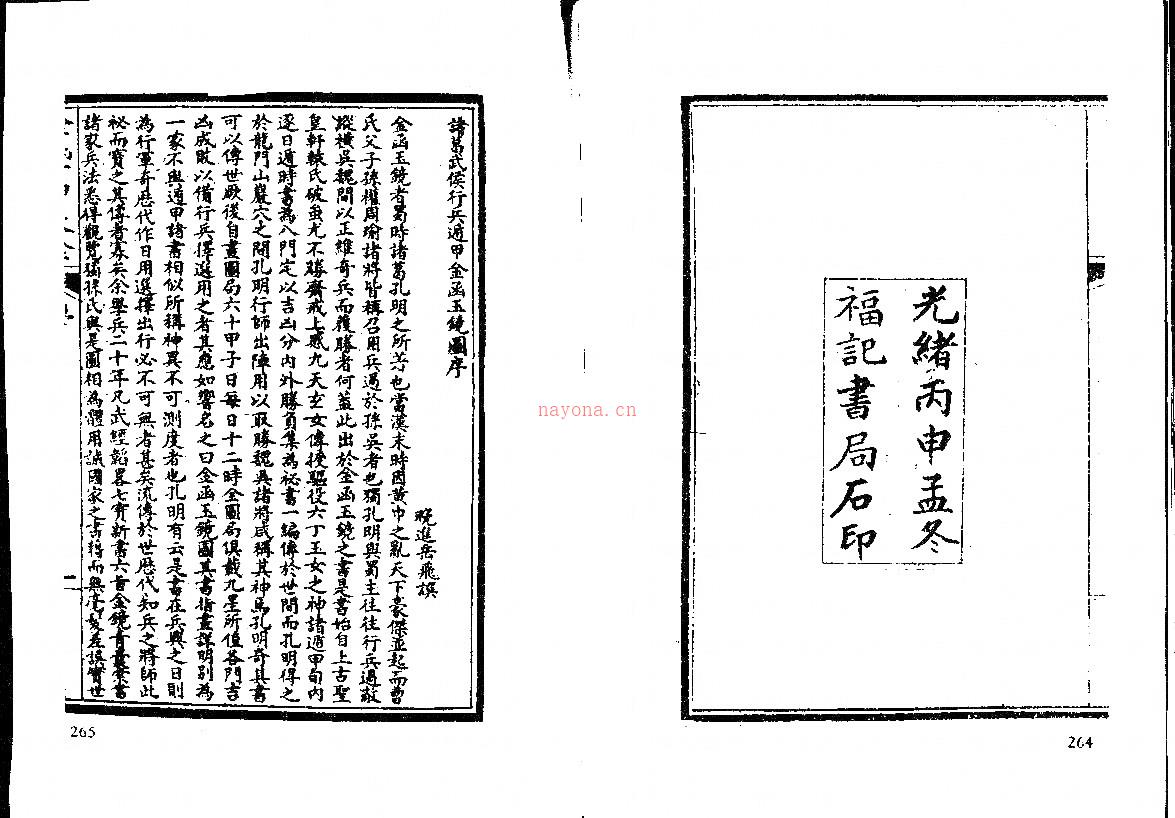 光緒丙申孟冬
福記書局石印
264
諸葛武侯行兵遁甲金函玉鏡圖序
晚進岳飛譔
金函玉鏡者蜀時諸葛孔明之所芳也當漢末時因黃巾之亂天下豪傑並起而曹
氏父子孫權周瑜諸將皆稱召用兵過於孫吳者也獨孔明與蜀主往往行兵遇敵
蹤橫吳魏間以正維奇兵而獲勝者何蓋此出於金函玉鏡之書是書始自上古聖
皇軒轅氏破蚩尤不勝齋戒上感九天玄女傳授驅役六丁玉女之神諸遁甲旬內
逐日遁時書為八門定以吉凶分內外勝負集為祕書一編傳於世間而孔明得之
於龍門山巖穴之間孔明行師出陣用以取勝魏吳諸將咸稱其神焉孔明奇其書
可以傳世厥後自畫圖局六十甲子日每日十二時全圖局俱載九星所值各門吉
凶成敗以備行兵擇選用之者其應如響名之曰金函玉鏡圖其書指畫詳明別為
一家不與遁甲諸書相似所稱神異不可測度者也孔明有云是書在兵興之日則
為行軍奇歷代作日用選擇出行必不可無者甚矣流傳於世歷代知兵之將師此
祕而寶之其傳者寡矣余學兵二十年凡武經韜畧七寶新書六首金鏡青囊案書
諸家兵法悉得觀覽獨孫氏與是圖相為體用誠國家之書得而無毫髮差誤實世
265
nayona.cn